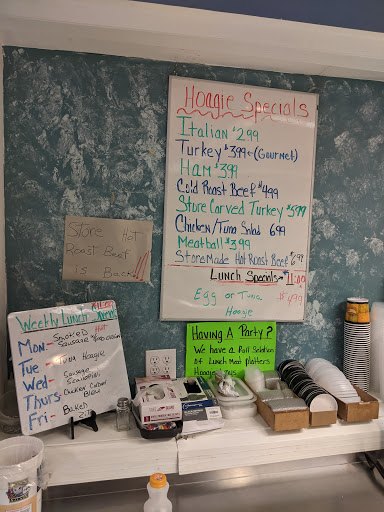 Hoagie Specials
Italian $2.99
Turkey $3.99 ← (Gourmet)
Ham $3.99
Cold Roast Beef $4.99
Store Carved Turkey $5.99
Chicken/Tuna Salad 6.99
Meatball $3.99
Store Made Hot Roast Beef $6.99
Lunch Specials → 11:00
Egg or Tuna $4.99
Hoagie
Store Hot
Roast Beef
is Back!!!
Weekly Lunch
Mon- Smoked Hot
Sausage
Tue - Tuna Hoagie
Wed- Sausage
Sandwich
Thurs- Chicken Cordon
Bleu
Fri- Baked
Ziti
Having A Party?
We have a Full Selection
of Lunch meat Platters
Hoagie